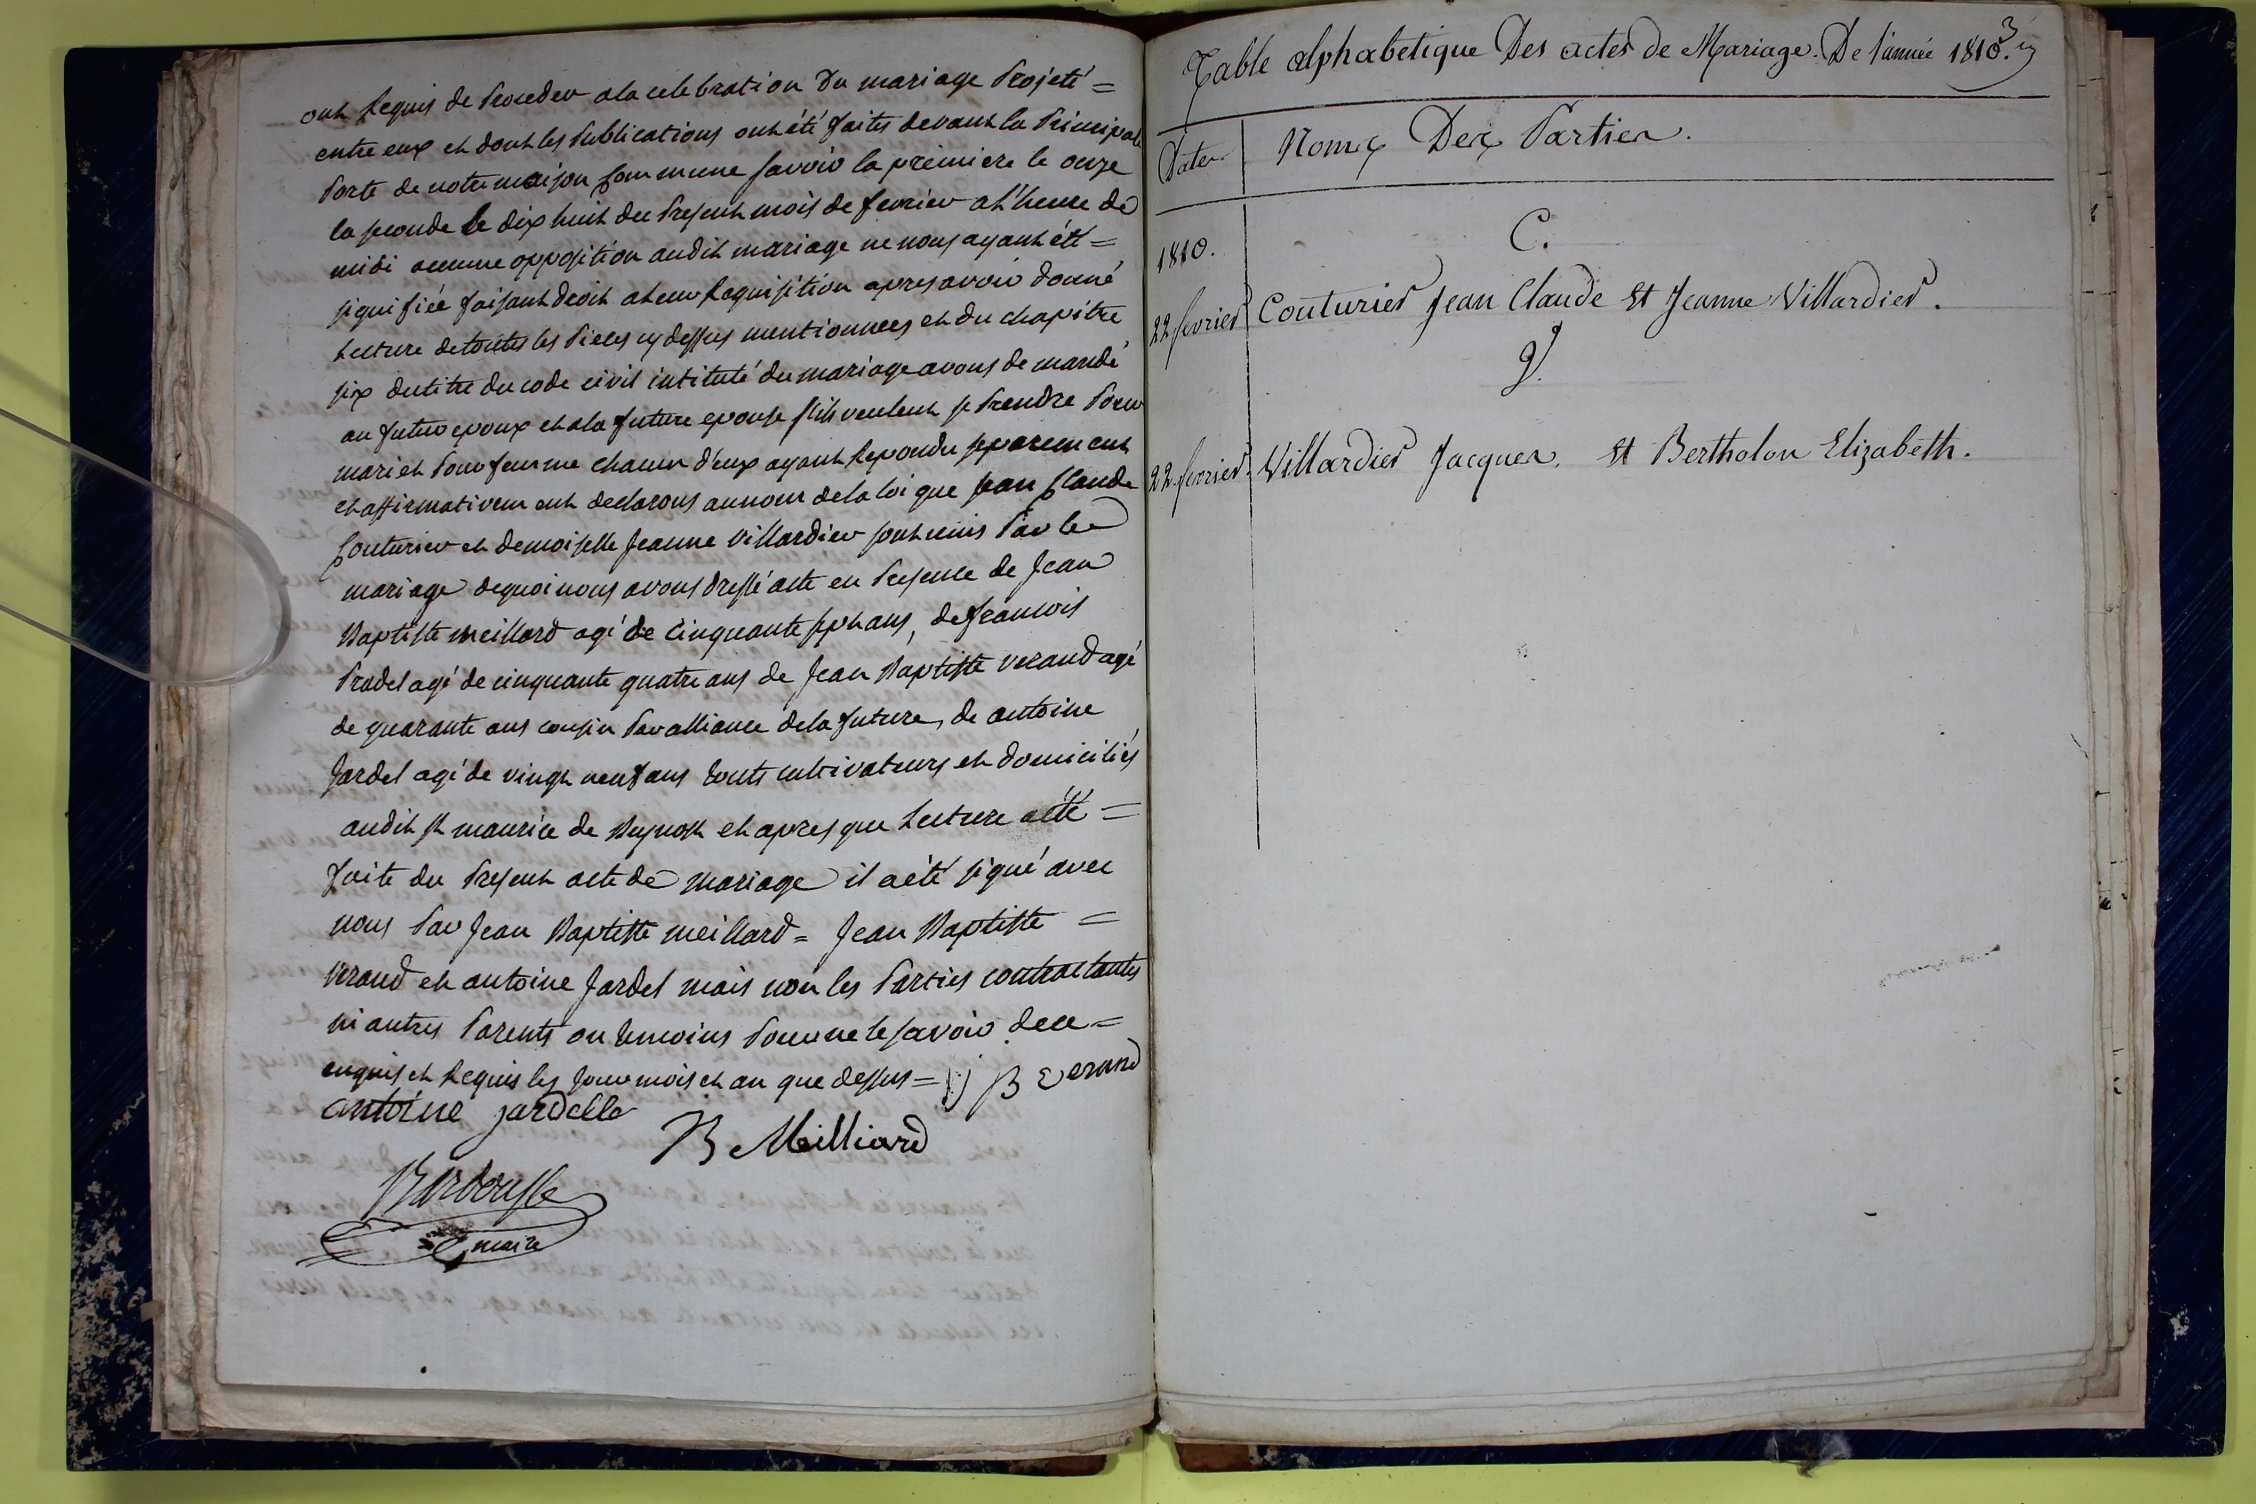 ont Requis de Proceder a la celebration du mariage Projeté =
entre eux et dont les Publications ont été faites devant la Principale
Porte de notre maison Commune savoir la premiere le onze
la seconde le dix huit du Present mois de fevrier a l'heure de
midi aucune opposition audit mariage ne nous ayant été =
signifiée faisant droit a leur Requisition apres avoir donné
Lecture de toutes les Pieces cy dessus mentionnees et du chapitre
six du titre du code civil intitulé du mariage avons demandé
au futur epoux et a la future epouse s'ils veulent se Prendre Pour
mari et Pour femme chacun d'eux ayant Repondu separement
et affirmativement declarons au nom de la loi que jean Claude
Couturier et demoiselle Jeanne Villardier sont unis Par le
mariage de quoi nous avons dressé acte en Presence de Jean
Baptiste meillard agé de cinquante sept ans, de francois
Pradel agé de cinquante quatre ans de Jean Baptiste verand agé
de quarante ans cousin Par alliance de la future, de antoine
Jardel agé de vingt neuf ans touts cultivateurs et domiciliés
audit St maurice de Beynost et apres que Lecture a été =
faite du Present acte de mariage il a été signé avec
nous Par Jean Baptiste meillard = Jean Baptiste =
Verand et antoine Jardel mais non les Parties contractantes
ni autres Parents ou temoins Pour ne le savoir de ce =
enquis et Requis les Jour mois et an que dessus = J B verand
antoine jardelle
B Milliard
maire
Table alphabetique Des actes de Mariage. De l'année 1810.
Dates Noms Des Parties.
1810. C.
22 fevrier Couturier Jean Claude Et Jeanne Villardier.
V.
22 fevrier. Villardier Jacques. Et Bertholon Elizabeth.